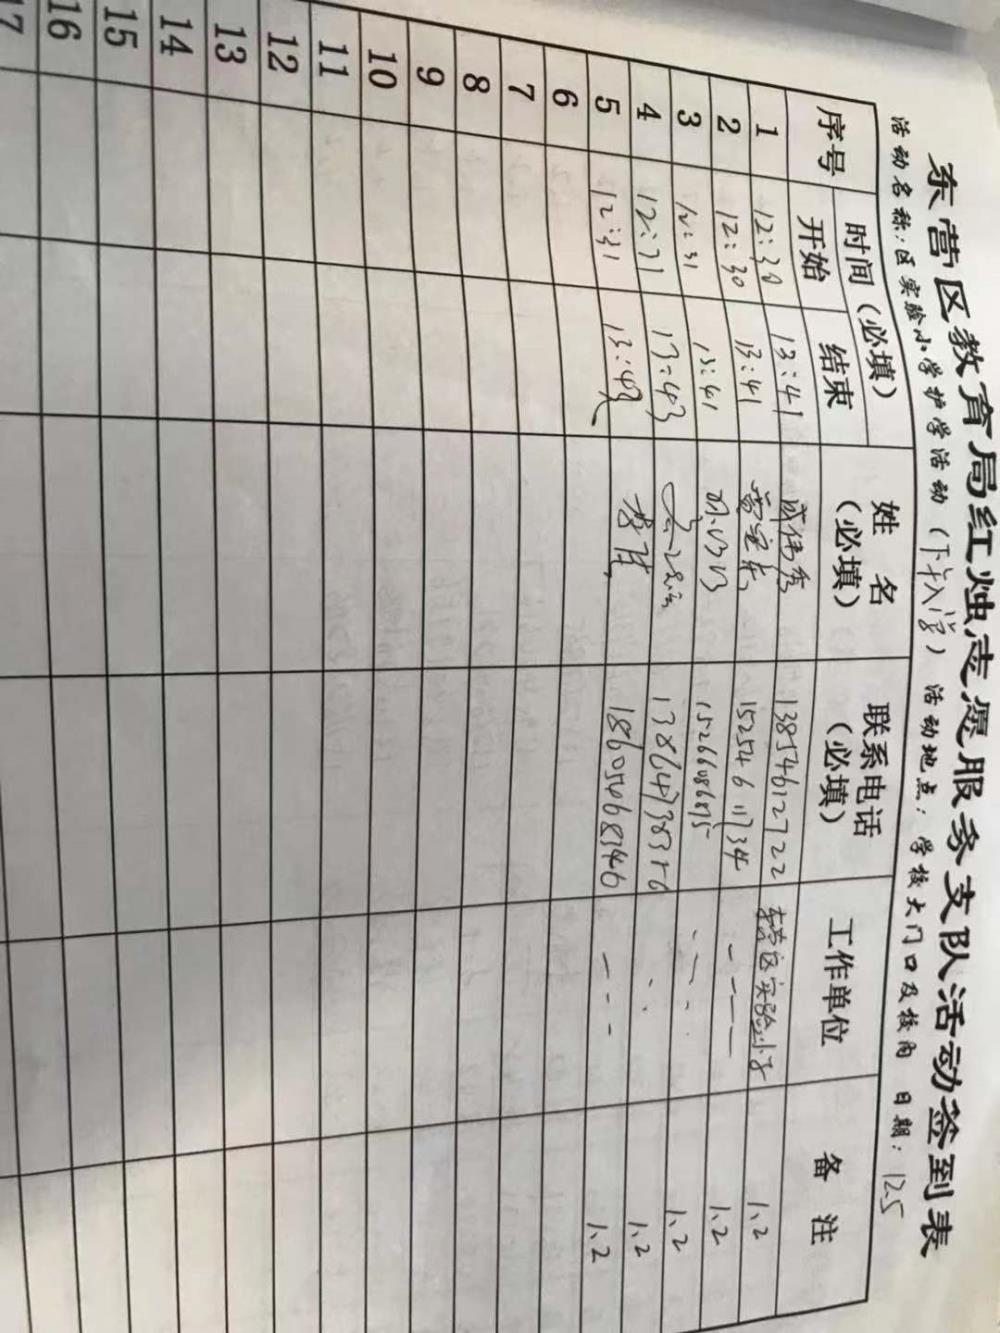 东营区教育局红烛志愿服务支队活动签到表
活动名称：区实验小学护学活动（下午入学） 活动地点：学校大门口及校内 日期：12.5
序号 时间（必填） 姓名（必填） 联系电话（必填） 工作单位 备注
开始 结束
1 12:30 13:41 13854612722 东营区实验小学 1、2
2 12:30 13:41 15254611734 1、2
3 12:31 13:41 15266086875 1、2
4 12:31 13:43 1、2
5 12:31 13:43 李洁 18605468346 1、2
6
7
8
9
10
11
12
13
14
15
16
17